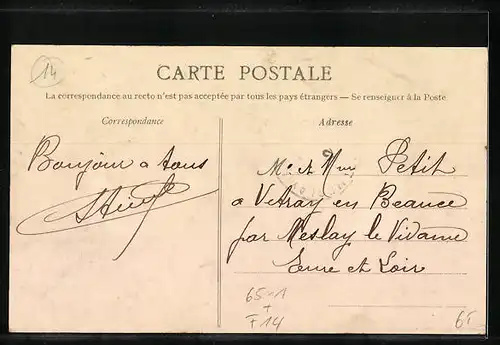 14
CARTE POSTALE
La correspondance au recto n'est pas acceptée par tous les pays étrangers — Se renseigner à la Poste
Correspondance
Adresse
Bonjour a tous
Mr et Mme Petit
a Vitray en Beauce
par Meslay le Vidame
Eure et Loir
65-1
+
F14
65